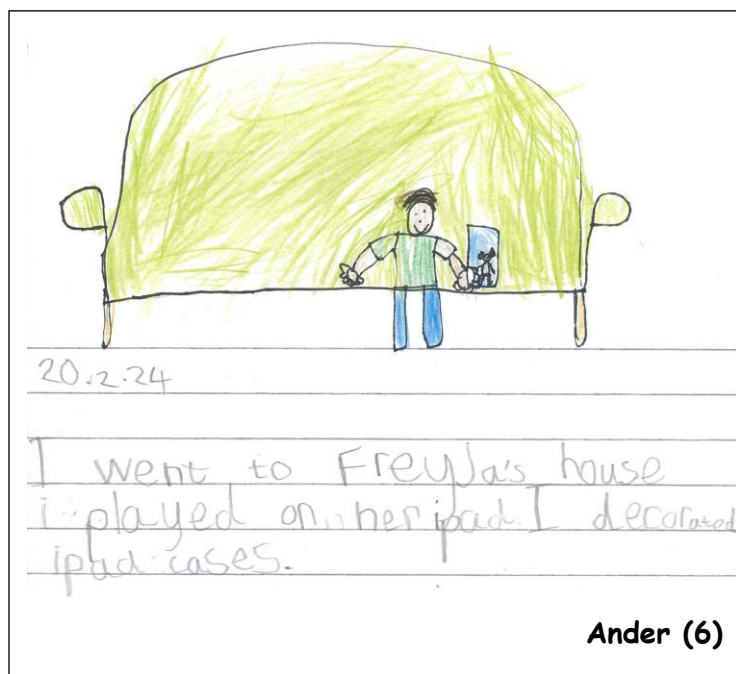 20.2.24
I went to Freyja's house
i played on her ipad I decorated
ipad cases.
Ander (6)